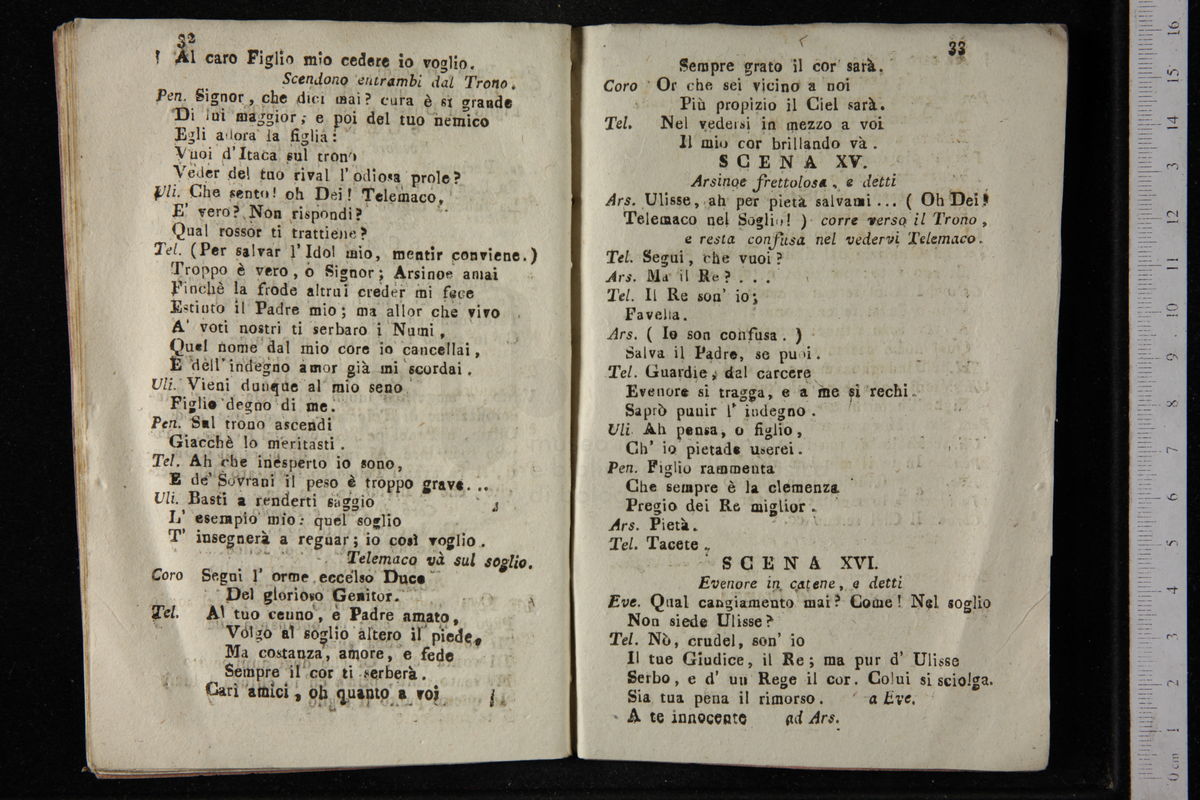 32
Al caro Figlio mio cedere io voglio.
Scendono entrambi dal Trono.
Pen. Signor, che dici mai? cura è si grande
Di lui maggior; e poi del tuo nemico
Egli adora la figlia:
Vuoi d'Itaca sul trono
Veder del tuo rival l'odiosa prole?
Uli. Che sento! oh Dei! Telemaco,
E' vero? Non rispondi?
Qual rossor ti trattiene?
Tel. (Per salvar l'Idol mio, mentir conviene.)
Troppo è vero, o Signor; Arsinoe amai
Finchè la frode altrui creder mi fece
Estinto il Padre mio; ma allor che vivo
A' voti nostri ti serbaro i Numi,
Quel nome dal mio core io cancellai,
E dell'indegno amor già mi scordai.
Uli. Vieni dunque al mio seno
Figlio degno di me.
Pen. Sul trono ascendi
Giacchè lo meritasti.
Tel. Ah che inesperto io sono,
E de' Sovrani il peso è troppo grave...
Uli. Basti a renderti saggio
L' esempio mio: quel soglio
T' insegnerà a regnar; io così voglio.
Telemaco và sul soglio.
Coro Segui l' orme eccelso Duce
Del glorioso Genitor.
Tel. Al tuo cenno, e Padre amato,
Volgo al soglio altero il piede,
Ma costanza, amore, e fede
Sempre il cor ti serberà.
Cari amici, oh quanto a voi
33
Sempre grato il cor sarà.
Coro Or che sei vicino a noi
Più propizio il Ciel sarà.
Tel. Nel vedersi in mezzo a voi
Il mio cor brillando và.
SCENA XV.
Arsinoe frettolosa, e detti
Ars. Ulisse, ah per pietà salvami... ( Oh Dei!
Telemaco nel Soglio! ) corre verso il Trono,
e resta confusa nel vedervi Telemaco.
Tel. Segui, che vuoi?
Ars. Ma il Re? . . .
Tel. Il Re son' io;
Favella.
Ars. ( Io son confusa. )
Salva il Padre, se puoi.
Tel. Guardie, dal carcere
Evenore si tragga, e a me si rechi.
Saprò punir l' indegno.
Uli. Ah pensa, o figlio,
Ch' io pietade userei.
Pen. Figlio rammenta
Che sempre è la clemenza
Pregio dei Re miglior.
Ars. Pietà.
Tel. Tacete.
SCENA XVI.
Evenore in catene, e detti
Eve. Qual cangiamento mai? Come! Nel soglio
Non siede Ulisse?
Tel. Nò, crudel, son' io
Il tue Giudice, il Re; ma pur d' Ulisse
Serbo, e d' un Rege il cor. Colui si sciolga.
Sia tua pena il rimorso. a Eve.
A te innocente ad Ars.
0 cm 1 2 3 4 5 6 7 8 9 10 11 12 13 14 15 16